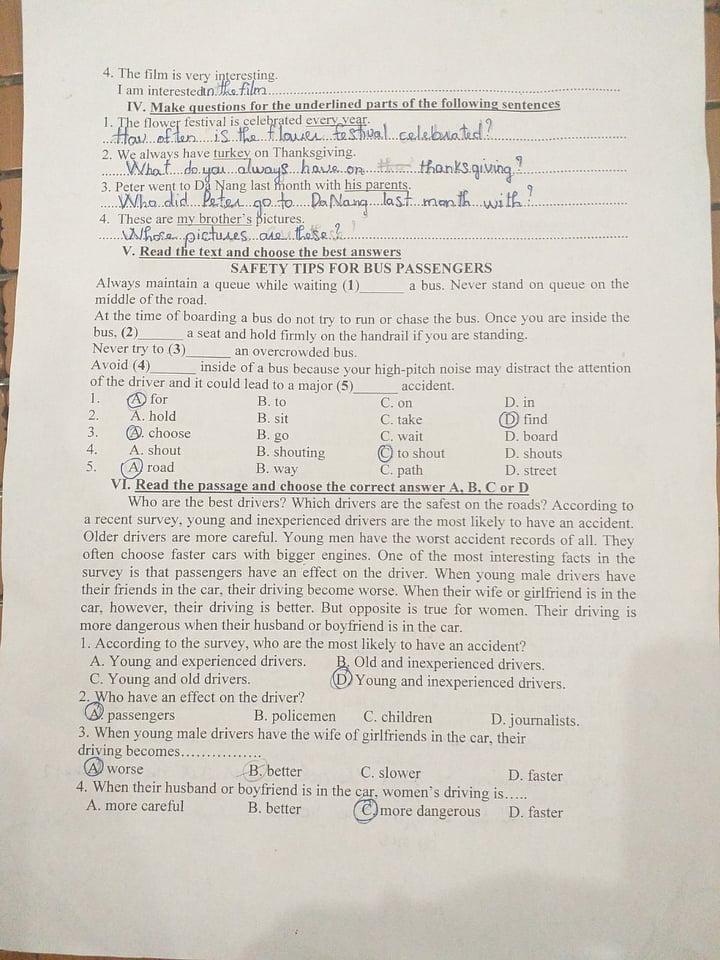 4. The film is very interesting.
I am interested in the film
IV. Make questions for the underlined parts of the following sentences
1. The flower festival is celebrated every year.
How often is the flower festival celebrated?
2. We always have turkey on Thanksgiving.
What do you always have on thanksgiving?
3. Peter went to Da Nang last month with his parents.
Who did Peter go to DaNang last month with?
4. These are my brother's pictures.
Whose pictures are these?
V. Read the text and choose the best answers
SAFETY TIPS FOR BUS PASSENGERS
Always maintain a queue while waiting (1)______ a bus. Never stand on queue on the
middle of the road.
At the time of boarding a bus do not try to run or chase the bus. Once you are inside the
bus, (2)______ a seat and hold firmly on the handrail if you are standing.
Never try to (3)______ an overcrowded bus.
Avoid (4)______ inside of a bus because your high-pitch noise may distract the attention
of the driver and it could lead to a major (5)______ accident.
1. A. for B. to C. on D. in
2. A. hold B. sit C. take D. find
3. A. choose B. go C. wait D. board
4. A. shout B. shouting C. to shout D. shouts
5. A. road B. way C. path D. street
VI. Read the passage and choose the correct answer A, B, C or D
Who are the best drivers? Which drivers are the safest on the roads? According to
a recent survey, young and inexperienced drivers are the most likely to have an accident.
Older drivers are more careful. Young men have the worst accident records of all. They
often choose faster cars with bigger engines. One of the most interesting facts in the
survey is that passengers have an effect on the driver. When young male drivers have
their friends in the car, their driving become worse. When their wife or girlfriend is in the
car, however, their driving is better. But opposite is true for women. Their driving is
more dangerous when their husband or boyfriend is in the car.
1. According to the survey, who are the most likely to have an accident?
A. Young and experienced drivers. B. Old and inexperienced drivers.
C. Young and old drivers. D. Young and inexperienced drivers.
2. Who have an effect on the driver?
A. passengers B. policemen C. children D. journalists.
3. When young male drivers have the wife of girlfriends in the car, their
driving becomes……………
A. worse B. better C. slower D. faster
4. When their husband or boyfriend is in the car, women's driving is…..
A. more careful B. better C. more dangerous D. faster